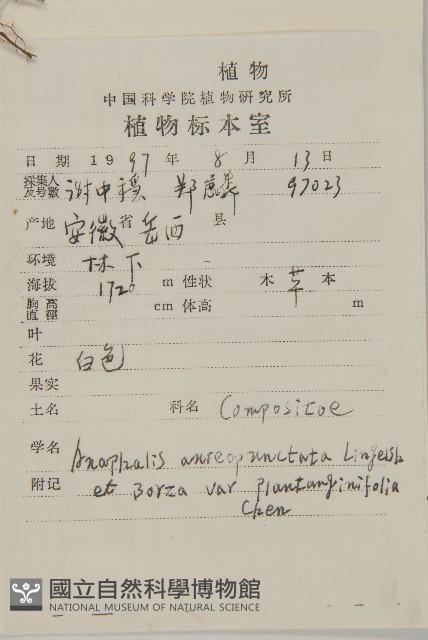 植物
中国科学院植物研究所
植物标本室
日期 1997年 8月 13日
採集人及号數 谢中稳 郑 97023
产地 安徽省 岳西 县
环境 林下
海拔 1720 m 性状 木 草 本
胸高直徑 cm 体高 m
叶
花 白色
果实
土名 科名 Compositae
学名 Anaphalis aureopunctata Lingelsh
附记 et Borza var plantanginifolia
Chen
國立自然科學博物館
NATIONAL MUSEUM OF NATURAL SCIENCE